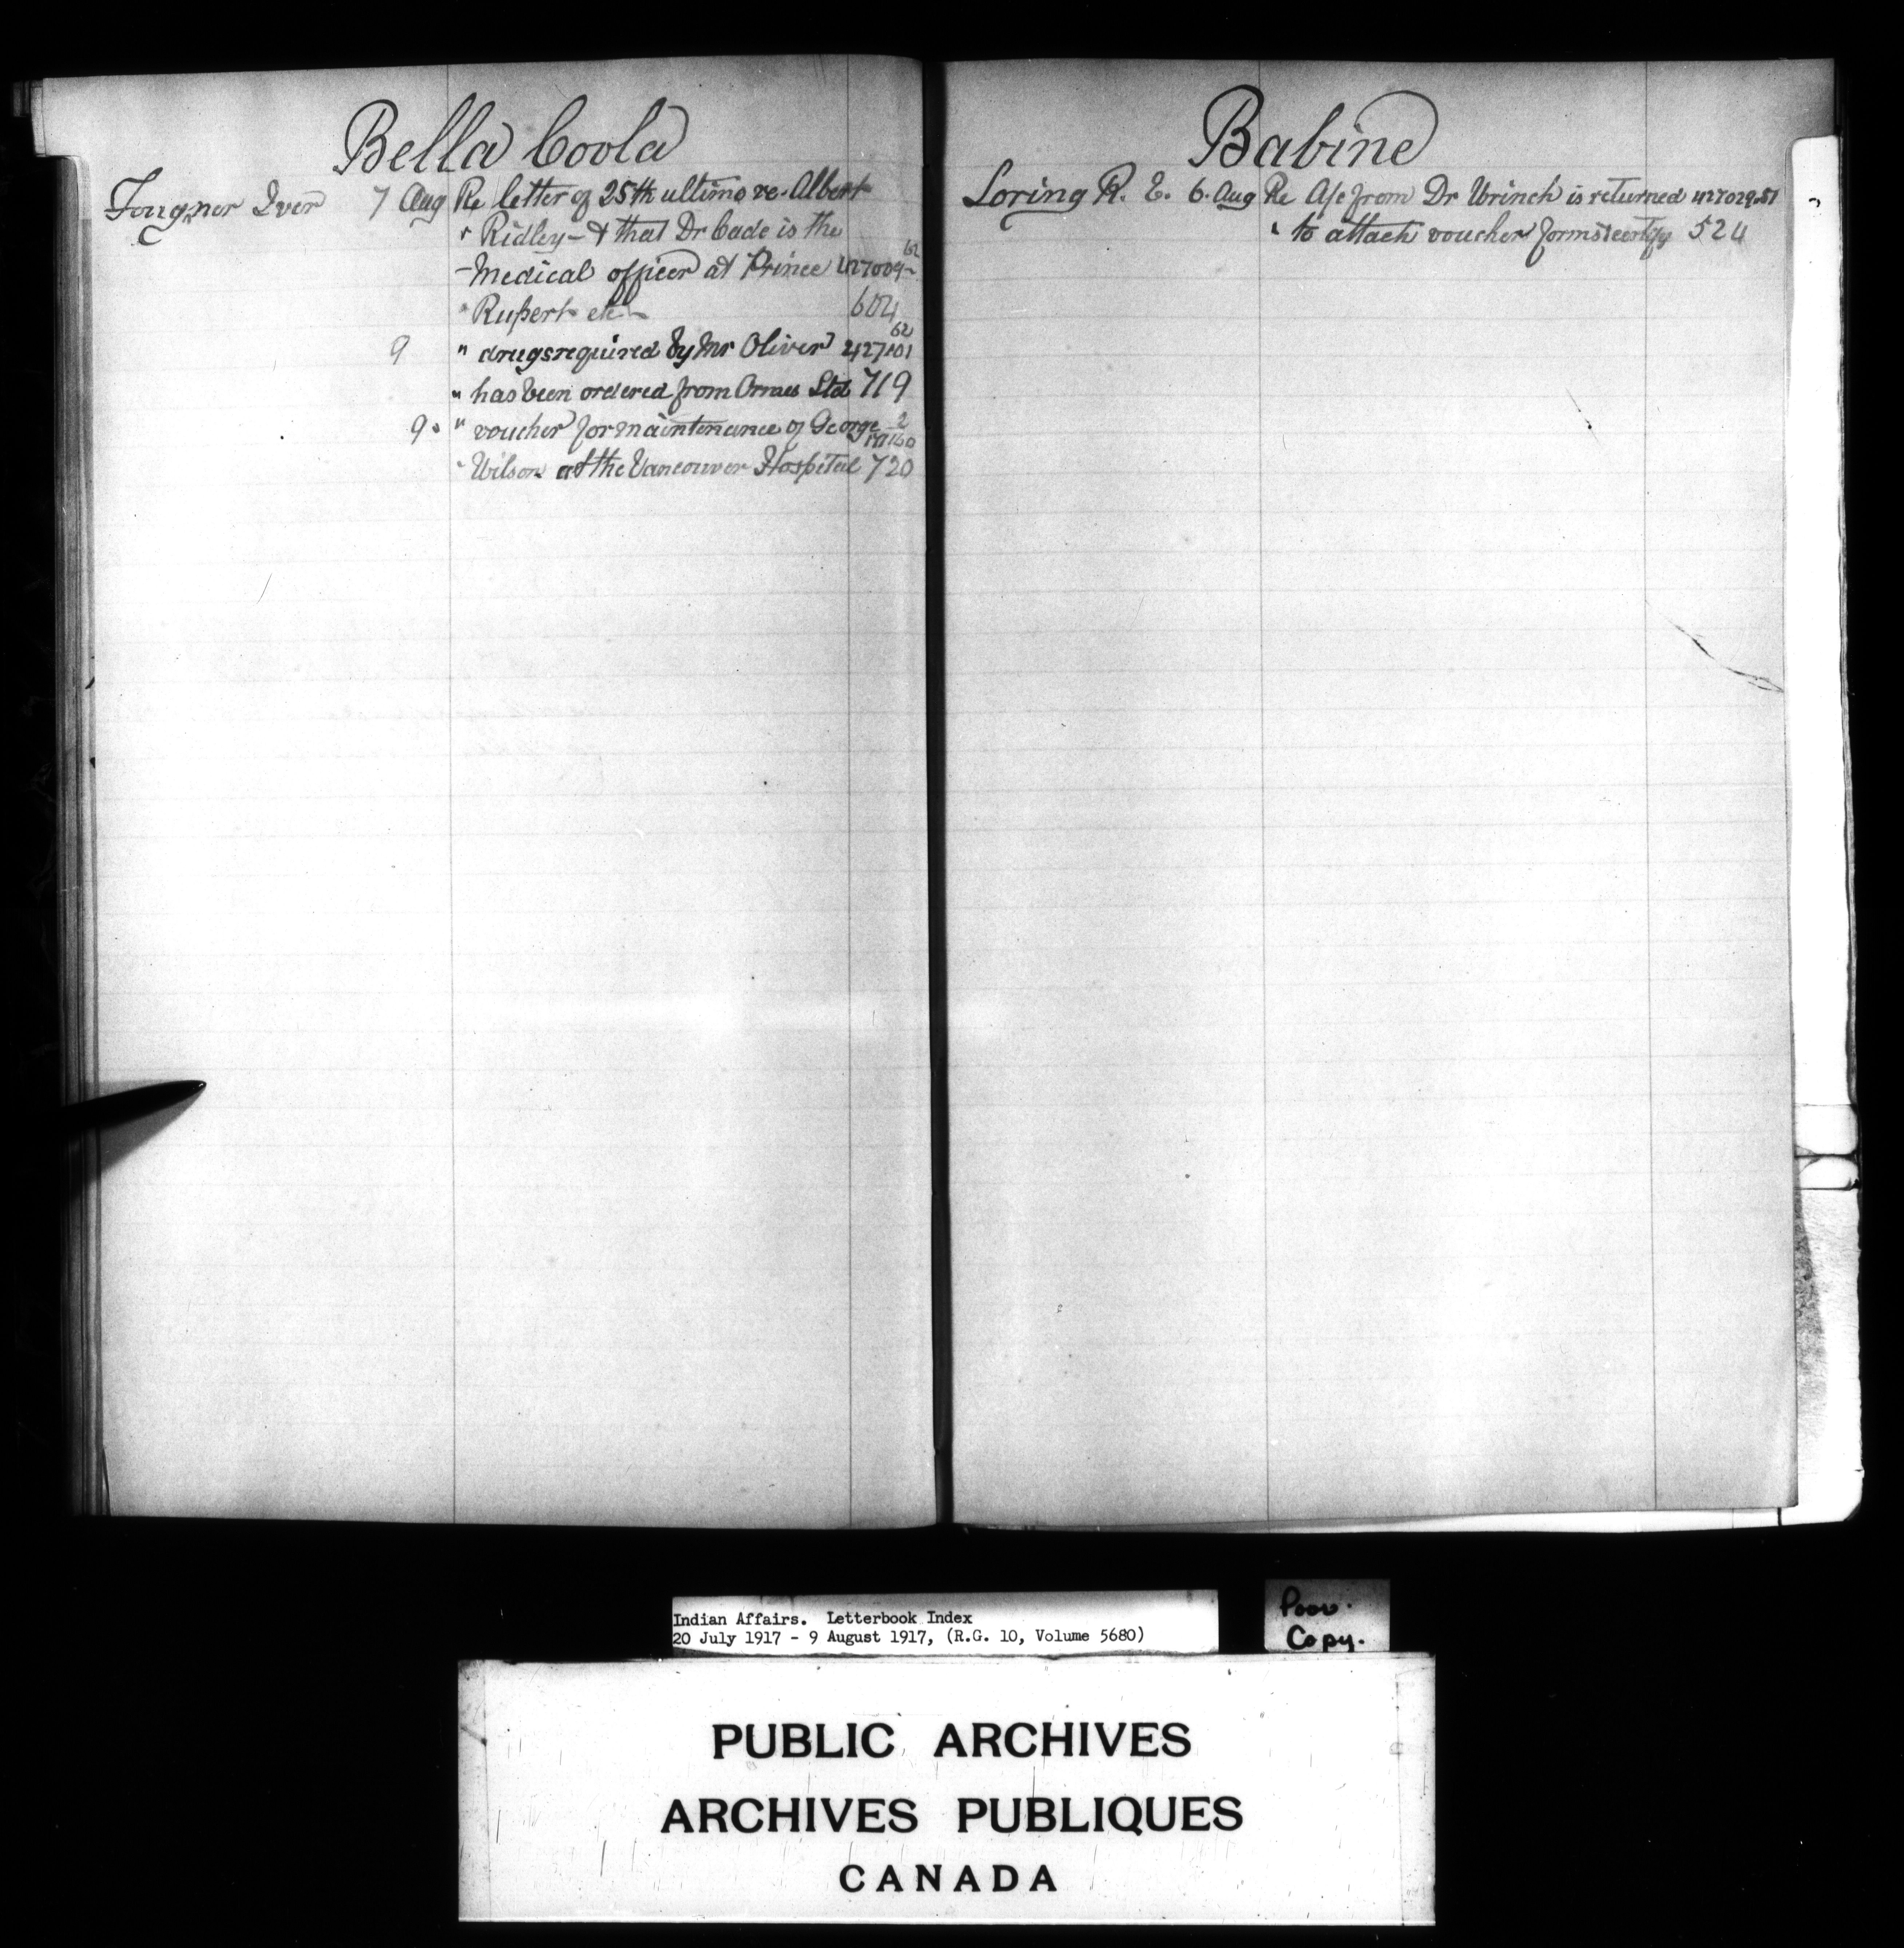 Bella Coola
Fougner Iver 7 Aug Re letter of 25th ultimo re. Albert
" Ridley - & that Dr Cade is the
- Medical officer at Prince 427009-62
" Rupert etc - 604
9 " drugs required by Mr Oliver 427101 62
" has been ordered from Ormes Ltd 719
9. " voucher for maintenance of George 2
" Wilson at the Vancouver Hospital 720
Babine
Loring R. E. 6. Aug Re A/c from Dr Wrinch is returned 427029.51
" to attach voucher forms & certify 524
Indian Affairs. Letterbook Index
20 July 1917 - 9 August 1917, (R.G. 10, Volume 5680)
Poor.
Copy.
PUBLIC ARCHIVES
ARCHIVES PUBLIQUES
CANADA